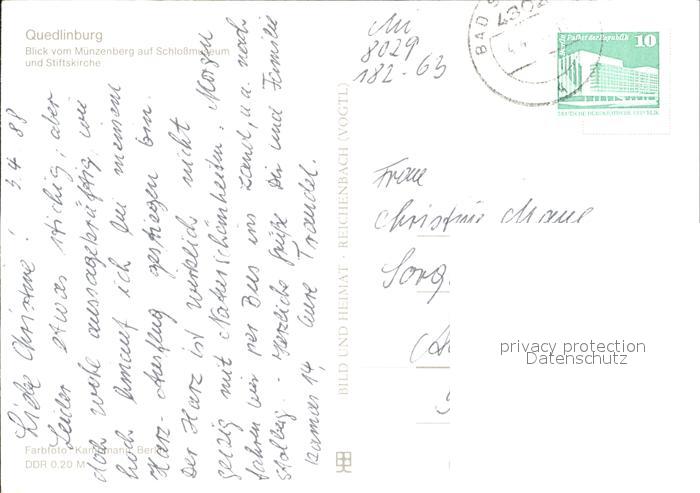 Quedlinburg
Blick vom Münzenberg auf Schloßmuseum
und Stiftskirche
Liebe Christine! 3.4.88
Leider etwas stichig, aber
doch wohl aussagekräftig, wie
hoch hinauf ich bei meinem
Harz-Ausflug gestiegen bin.
Der Harz ist wirklich nicht
geizig mit Naturschönheiten. Morgen
fahren wir per Bus ins Land, u.a. nach
Stolberg. - Herzliche Grüße Dir und Familie
Eure Traudel.
Farbfoto: Berlin
DDR 0,20 M
BILD UND HEIMAT · REICHENBACH (VOGTL)
8029
182-63
BAD
Palast der Republik
10
DEUTSCHE DEMOKRATISCHE REPUBLIK
Frau
Christine
Sorg
privacy protection
Datenschutz